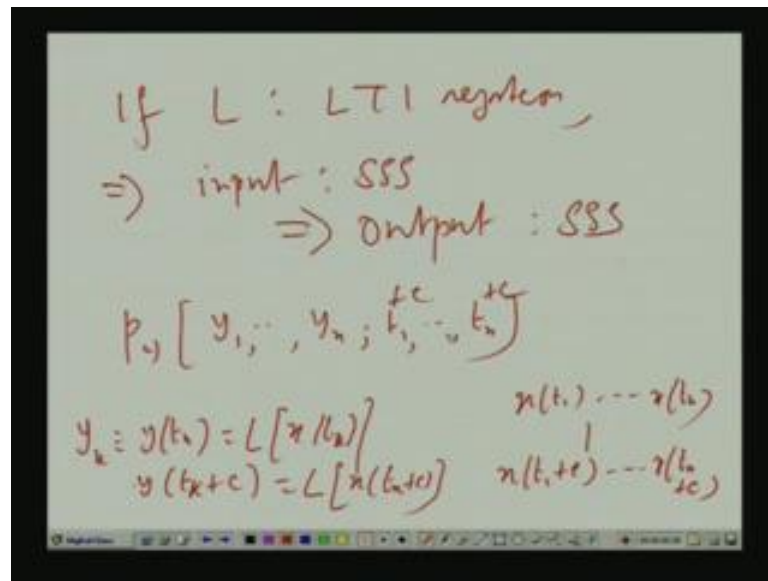 If L : LTI system,
=> input : SSS
=> Output : SSS
p_y [ y_1, .., y_n ; t_1+c, .., t_n+c ]
y_k ≡ y(t_k) = L[x(t_k)]
y(t_k+c) = L[x(t_k+c)]
x(t_1) --- x(t_n)
|
x(t_1+c) --- x(t_n+c)